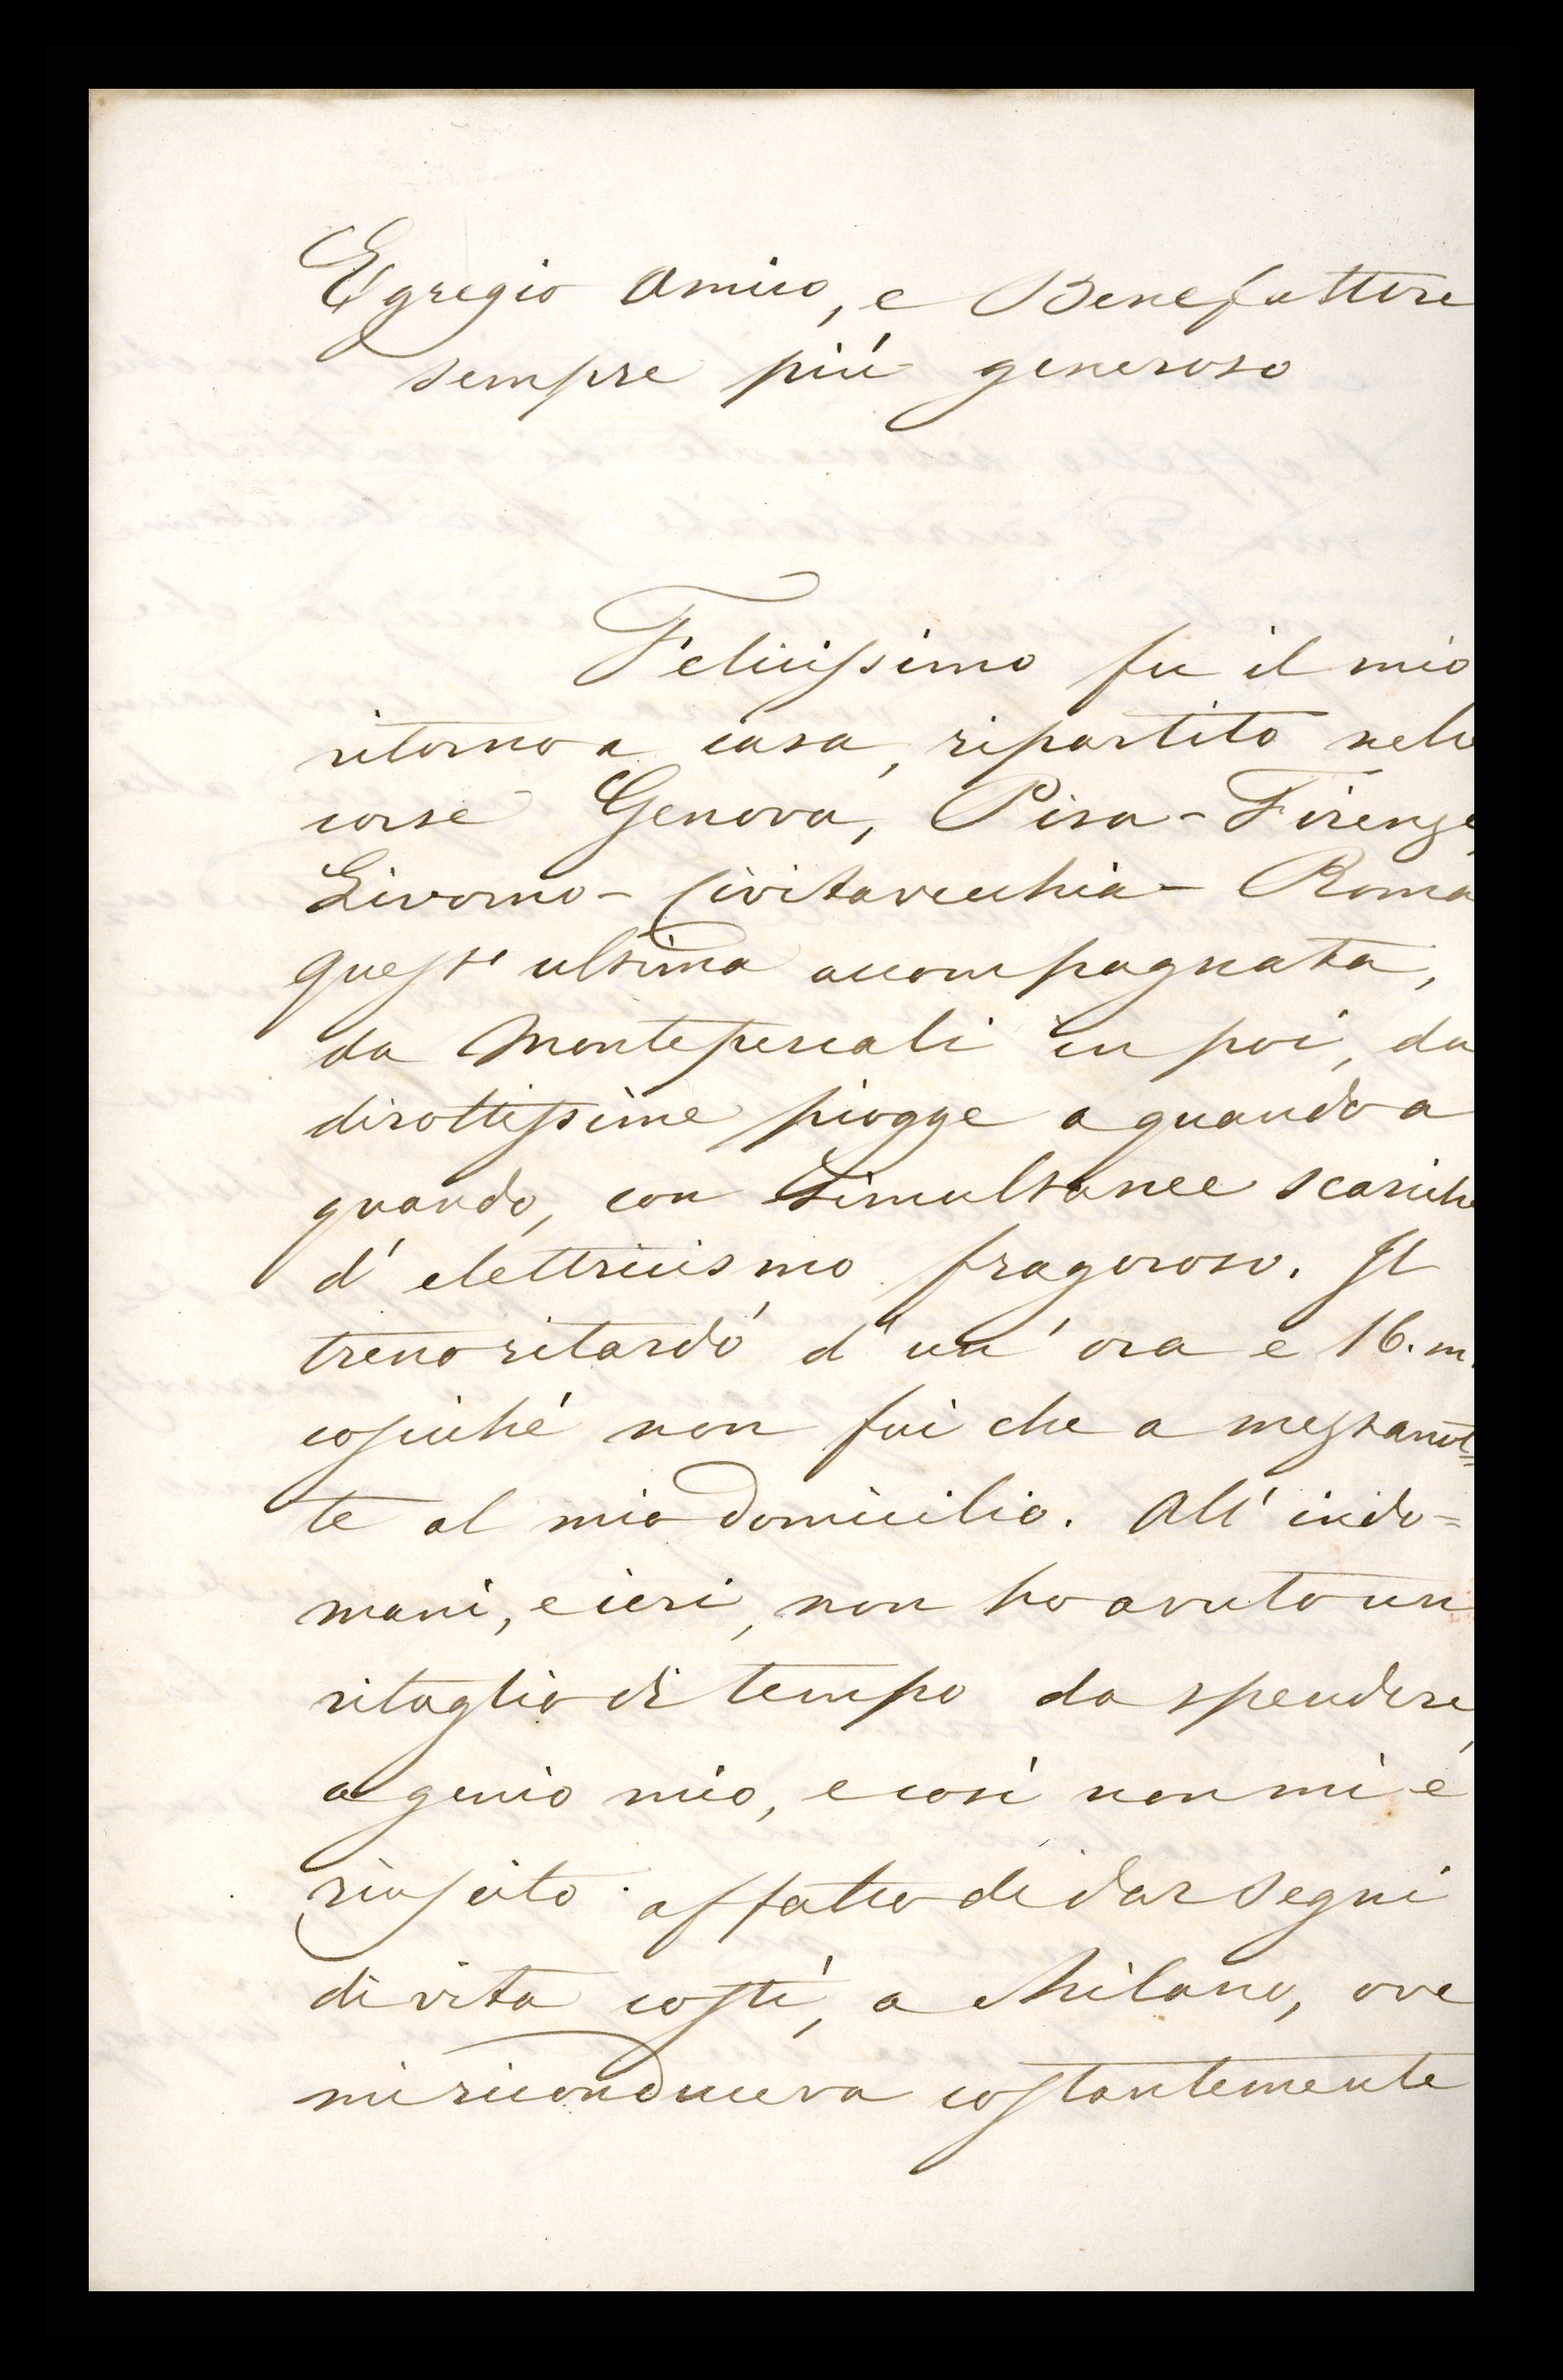 Egregio Amico, e Benefattore
sempre più generoso
Felicissimo fu il mio
ritorno a casa, ripartito nelle
corse Genova, Pisa - Firenze,
Livorno - Civitavecchia - Roma
quest' ultima accompagnata,
da Montepescali in poi, da
dirottissime piogge a quando a
quando, con simultanee scariche
d' elettricismo fragoroso. Il
treno ritardò d' un' ora e 16. m.
cosicché non fui che a mezzanot=
te al mio domicilio. All' indo=
mani, e ieri, non ho avuto un
ritaglio di tempo da spendere,
a genio mio, e così non mi è
riuscito affatto di dar segni
di vita costì, a Milano, ove
mi riconduceva costantemente